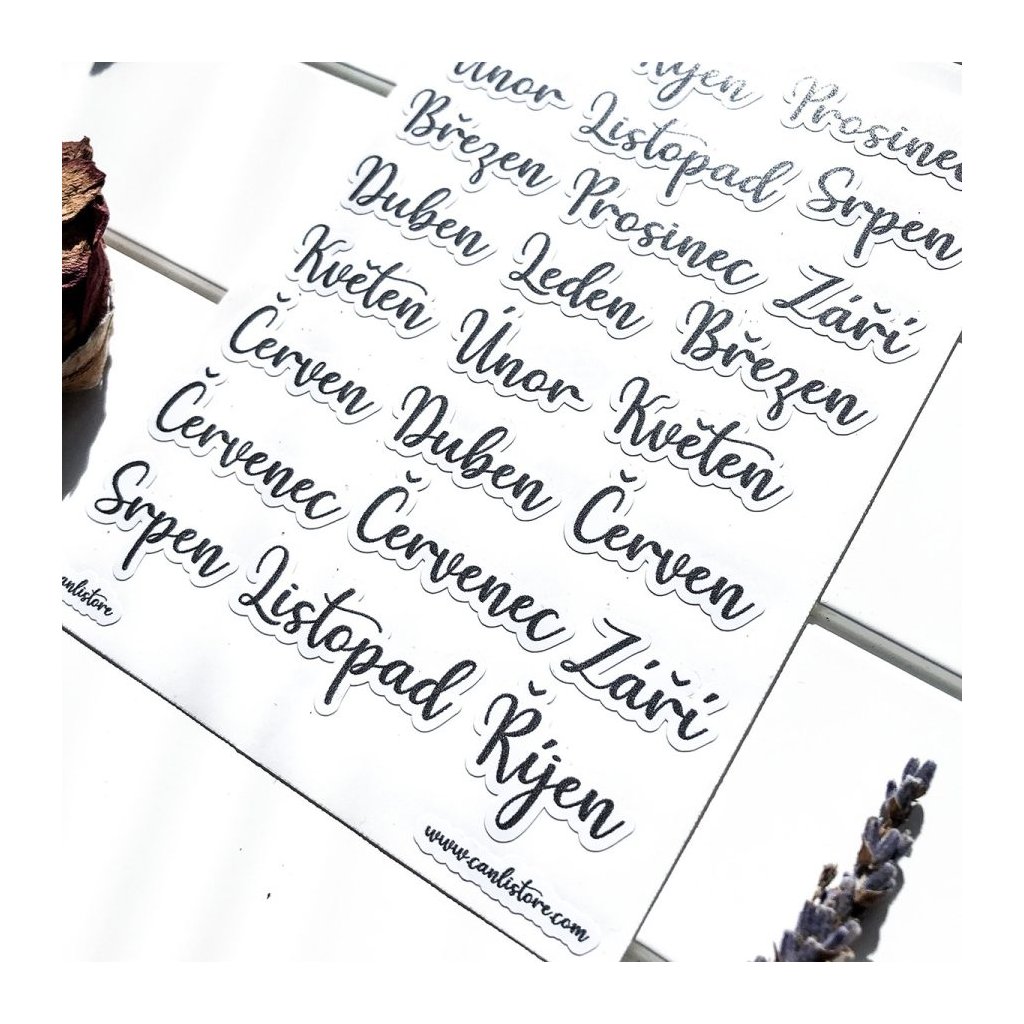 Říjen Prosinec
Únor Listopad Srpen
Březen Prosinec Září
Duben Leden Březen
Květen Únor Květen
Červen Duben Červen
Červenec Červenec Září
Srpen Listopad Říjen
canlistore
www.canlistore.com